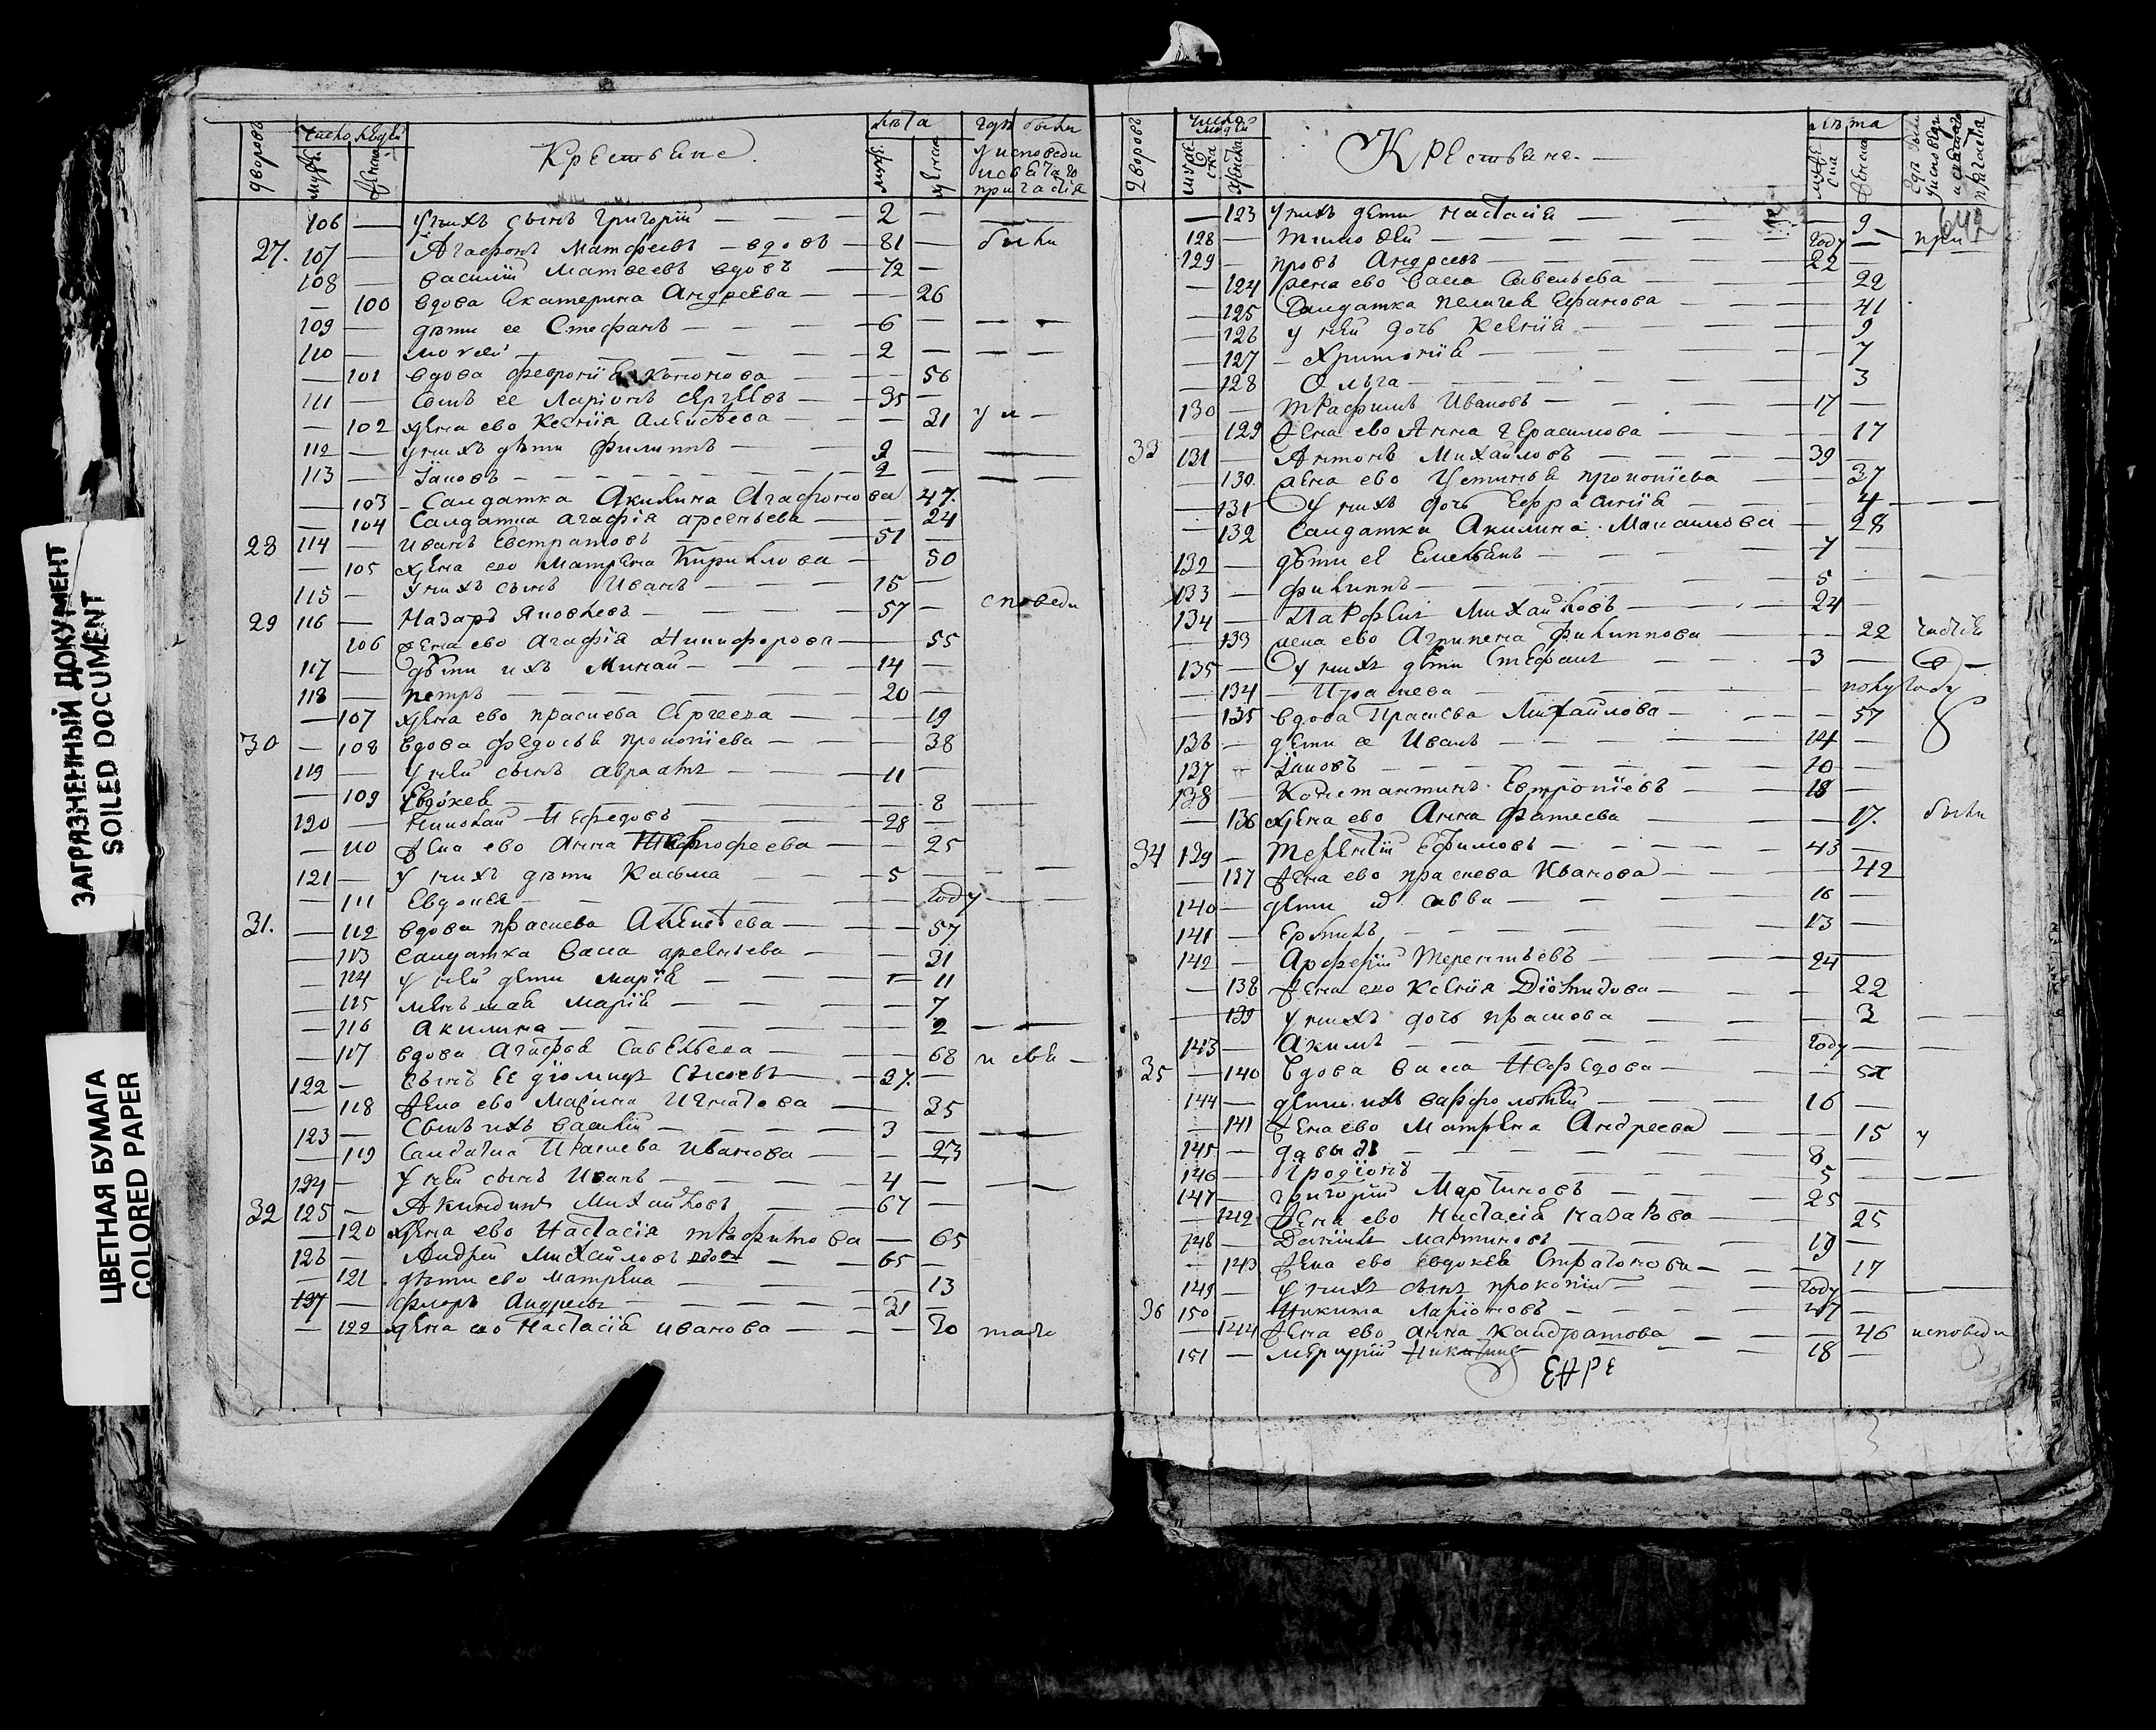 ЗАГРЯЗНЕННЫЙ ДОКУМЕНТ
SOILED DOCUMENT
ЦВЕТНАЯ БУМАГА
COLORED PAPER
дворовъ Число людей Крестьяне лѣта гдѣ были
муж. женска муж. женска у исповеди
и святаго
причастія
106 — у нихъ сынъ григорій — 2 —
27. 107 — Агафонъ Матфеевъ — вдовъ — 81 — были
108 — василій Матвеевъ вдовъ — 72 —
— 100 вдова Екатерина Андреева — — 26
109 — дѣти ее Стефанъ — 6 —
110 — Моисей — 2 —
— 101 вдова феврониѣ кононова — — 56
111 — сынъ ее Ларіонъ Сергѣевъ — 35 —
— 102 жена ево Ксенія Алексѣева — — 31 у и —
112 — у нихъ дѣти филиппъ — 9 —
113 — Іаковъ — 2 —
— 103 — Салдатка Акилина Агафонова 47.
— 104 Салдатка агафія арсеньева — — 24
28 114 — иванъ Евстратовъ — 51 —
— 105 жена ево Матрена Кирилова — 50
115 — у нихъ сынъ Иванъ — 15 —
29 116 — Назаръ Яковлевъ — 57 — споведи
106 жена ево Агафія Никифорова — 55
117 — дѣти ихъ Минай — 14 —
118 — петръ — 20 —
— 107 жена ево прасковa Сергеева — — 19
30 — 108 вдова федосья прокопіева — — 38
119 — у ней сынъ авраамъ — 11 —
— 109 Евдокея — 8
120 — Николай Нефедовъ — 28 —
— 110 жена ево анна — 25
121 — у нихъ дѣти Касьма — 5 —
— 111 Евдокея — году
31. — 112 вдова праскева Алексѣева — — 57
— 113 салдатка васса арсентьева — — 31
— 114 у ней дети Марія — — 11
— 115 меньшая Марія — — 7
— 116 Акилина — — 2
— 117 вдова Агафья Савельева — — 68 и свя —
122 — сынъ ее діомидъ Сысоевъ — 37. —
— 118 жена ево Марина Игнатова — — 35
123 — сынъ ихъ василій — 3 —
— 119 Салдатка Праскева иванова — — 23
124 — у ней сынъ Иванъ — 4 —
32 125 — Акиндинъ Михайловъ — 67 —
— 120 жена ево Настасія трафимова — 65
126 — Андрей Михайловъ вдовъ — 65 —
— 121 дѣти ево Матрена — — 13
127 — флоръ Андреевъ — 31 —
— 122 жена ево Настасія иванова — — 30 таго
дворовъ число людей Крестьяне. лѣта гдѣ были
мужеска женска мужеска женска у исповеди
и святаго
причастія
642
— 123 у нихъ дети настасія — — 9
128 — тимофей — году — при
129 — провъ Андреевъ — 22 —
— 124 жена ево васса Савельева — — 22
— 125 Салдатка пелагея Ефимова — — 41
— 126 у ней дочь Ксенія — — 9
— 127 — Христинія — — 7
— 128 Ольга — — 3
130 — трафимъ Ивановъ — 17 —
— 129 жена ево Анна Герасимова — — 17
33 131 — Антонъ Михайловъ — 39 —
— 130 жена ево Устинья прокопіева — 37
— 131 у нихъ дочь Ефрасинія — 4
— 132 Салдатка Акилина Максимова — 28
132 — дѣти ее Емельянъ — 7
133 — филиппъ — 5
134 — Парфенъ Михайловъ — 24 —
— 133 жена ево Агрипена филиппова — — 22 частія
135 — у нихъ дети Стефанъ — 3 —
— 134 — Праскева — полугоду
— 135 вдова Праскева Михайлова — — 57
136 — дети ее Иванъ — 14 —
137 — Іаковъ — 10 —
138 — Константинъ Евтропіевъ — 18 —
— 136 жена ево Анна фатеева — — 17. были
34 139 — Терентій Ефимовъ — 43 —
— 137 жена ево праскева Иванова — — 42
140 — дети их савва — 16 —
141 — Ермилъ — 13 —
142 — Арефій Терентьевъ — 24 —
— 138 жена ево Ксенія Діомидова — — 22
— 139 у нихъ дочь праскова — — 3
143 — Акимъ — году —
35 — 140 вдова васса Нефедова — —
144 — дети ихъ варфоломей — 16 —
— 141 жена ево Матрена Андреева — 15 у
145 — давыдъ — 8
146 — Іродіонъ — 5
147 — григорій Мартиновъ — 25 —
— 142 жена ево Настасія Назарова — 25
148 — Даніилъ мартиновъ — 19 —
— 143 жена ево евдокея Стратонова — — 17
149 — у нихъ сынъ прокопій — году —
36 150 — Никита Ларіоновъ — 47 —
— 144 жена ево анна Кандратова — — 46 исповеди
151 — меркурій Никитинъ — 18 —